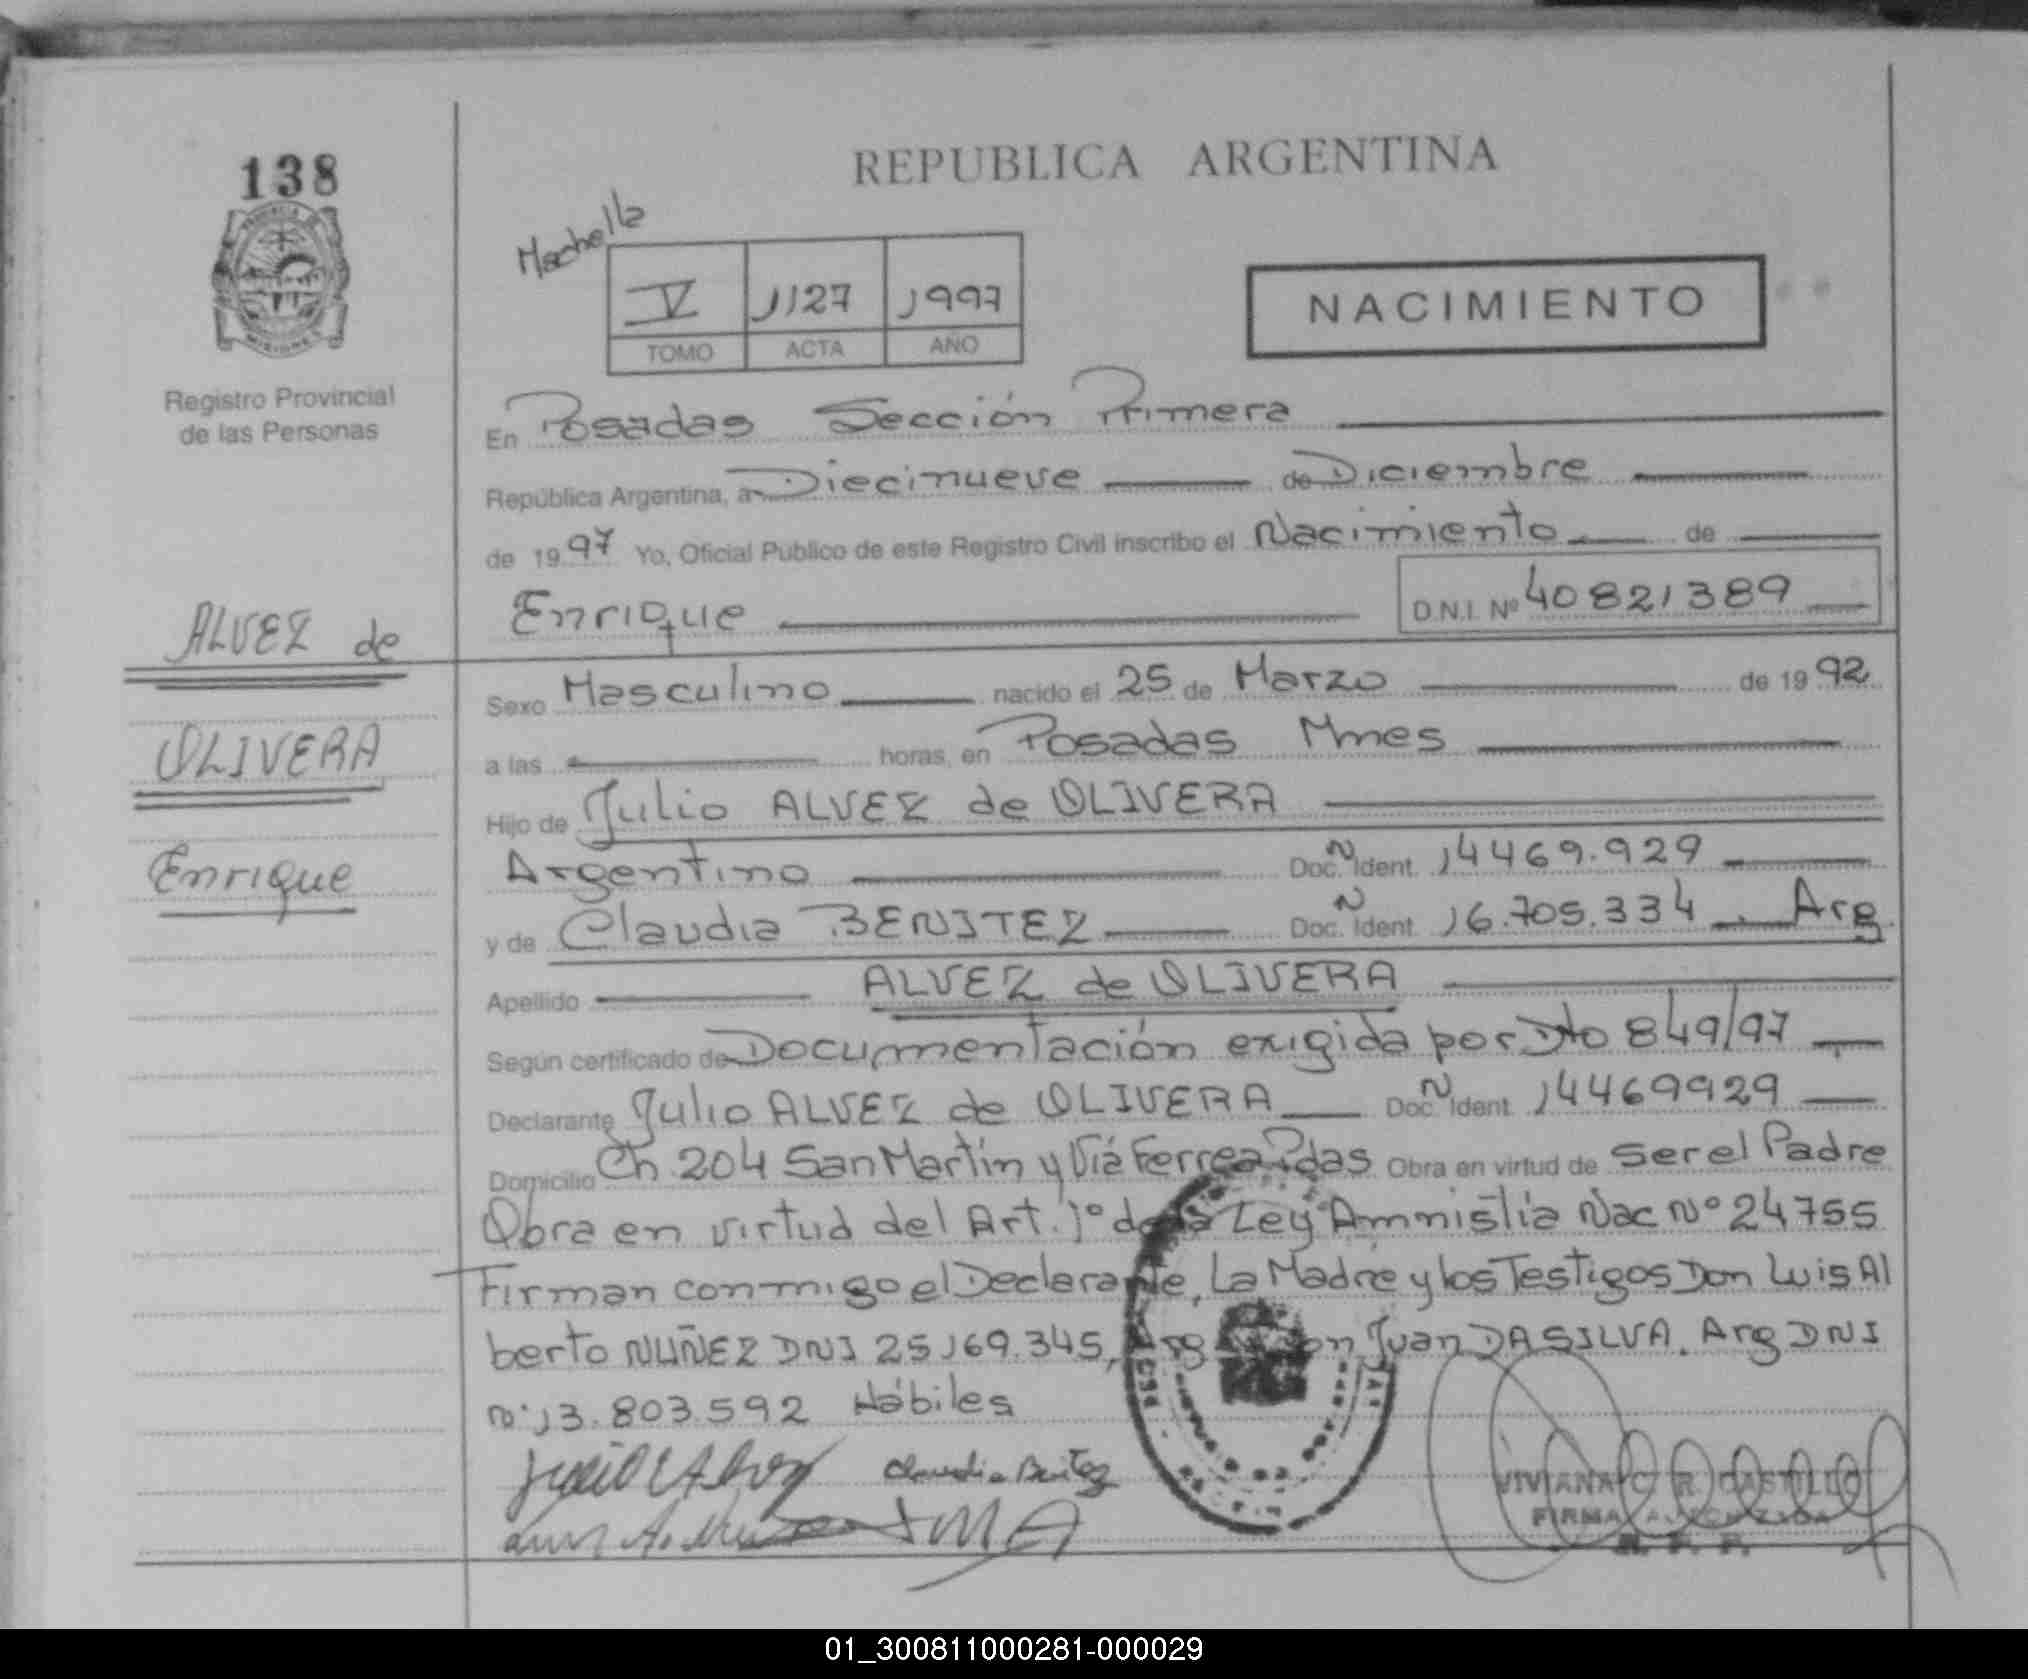 138
REPUBLICA ARGENTINA
PROVINCIA DE
MISIONES
V 1127 1997
TOMO ACTA AÑO
NACIMIENTO
Registro Provincial
de las Personas
En Posadas Sección Primera
República Argentina, a Diecinueve de Diciembre
de 1997 Yo, Oficial Publico de este Registro Civil inscribo el Nacimiento de
Enrique D.N.I. Nº 40821389
ALVEZ de
OLIVERA
Enrique
Sexo Masculino nacido el 25 de Marzo de 1992
a las horas, en Posadas Mnes
Hijo de Julio ALVEZ de OLIVERA
Argentino Doc. N Ident. 14469.929
y de Claudia BENITEZ Doc. N Ident. 16.705.334 . Arg.
Apellido ALVEZ de OLIVERA
Según certificado de Documentación exigida por Dto 849/97
Declarante Julio ALVEZ de OLIVERA Doc. N Ident. 14469929
Domicilio Ch 204 San Martín y Vía Ferrea Pdas Obra en virtud de ser el Padre
Obra en virtud del Art. 1º de la Ley Amnistía Nac Nº 24755
Firman conmigo el Declarante, La Madre y los Testigos Don Luis Al
berto NUÑEZ DNI 25169.345, Arg Don Juan DA SILVA. Arg DNI
Nº 13.803.592 Hábiles
Claudia Benitez
VIVIANA C. R. CASTILLO
FIRMA AUTORIZADA
R. P. P.
01_300811000281-000029